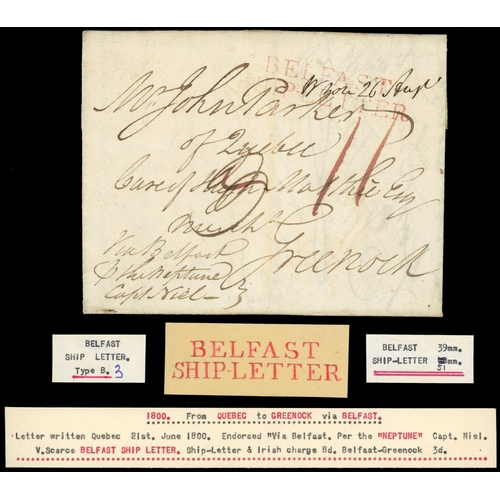 BELFAST
SHIP-LETTER
Wrote 26 Augt
Mr John Parker
of Quebec
11
Care of Hugh Matthie Esq
Mercht
Greenock
Via Belfast
P the Neptune
Capt Niel
BELFAST
SHIP LETTER.
Type B. 3
BELFAST
SHIP-LETTER
BELFAST 39mm.
SHIP-LETTER 51mm.
1800. From QUEBEC to GREENOCK via BELFAST.
Letter written Quebec 21st. June 1800. Endorsed "Via Belfast. Per the "NEPTUNE" Capt. Niel.
V.Scarce BELFAST SHIP LETTER. Ship-Letter & Irish charge 8d. Belfast-Greenock 3d.